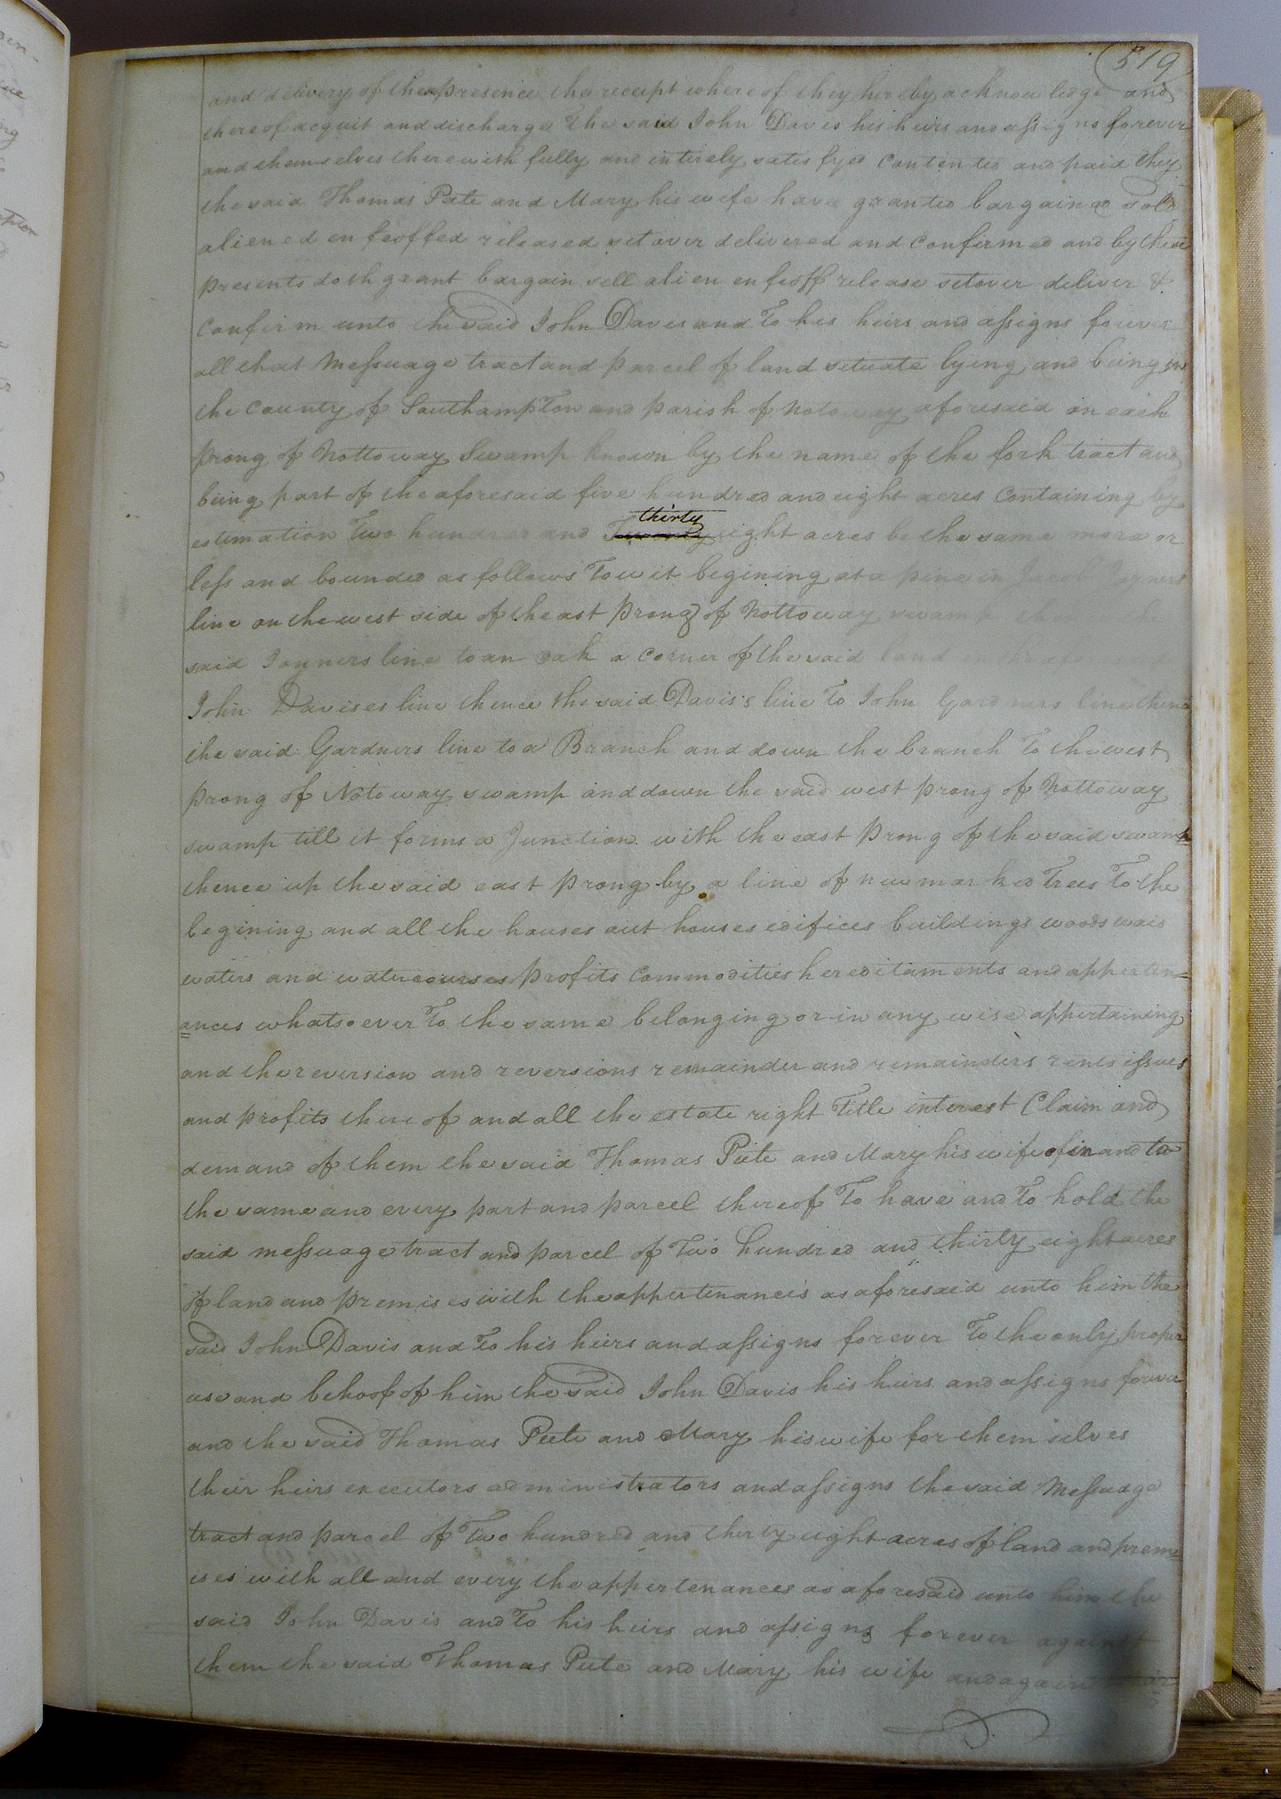 519
and delivery of these presence the receipt where of they hereby acknowledge and
thereof acquit and discharge The said John Davis his heirs and assigns forever
and themselves therewith fully and intirely satisfyed contented and paid they
the said Thomas Pete and Mary his wife have granted bargained sold
aliened enfeoffed released set over delivered and confirmed and by these
presents doth grant bargain sell alien enfeoff release setover deliver &
Confirm unto the said John Davis and To his heirs and assigns forever
all that Messuage tract and parcel of land situate lying and being in
the County of Southampton and parish of Notoway aforesaid on each
prong of Nottoway Swamp known by the name of the fork tract and
being part of the aforesaid five hundred and eight acres Containing by
estimation Two hundred and Twenty thirty eight acres be the same more or
less and bounded as follows Towit begining at a pine in Jacob Joyners
line on the west side of the east prong of Nottoway swamp
said Joyners line to an oak a corner of the said land
John Davises line thence the said Davis's line To John Gardners line thence
the said Gardners line to a Branch and down the branch To the west
prong of Notoway swamp and down the said west prong of Nottoway
swamp till it forms a Junction with the east prong of the said swamp
thence up the said east prong by a line of new marked Trees To the
begining and all the houses out houses edifices buildings woods wais
waters and watercourses profits commodities hereditaments and apperten=
=ances whatsoever To the same belonging or in any wise appertaining
and the reversion and reversions remainder and remainders rents issues
and profits there of and all the estate right Title interest Claim and
demand of them the said Thomas Pete and Mary his wife of in and to
the same and every part and parcel thereof To have and To hold the
said messuage tract and parcel of Two hundred and thirty eight acres
of land and premises with the appertenances as aforesaid unto him the
said John Davis and To his heirs and assigns forever To the only proper
use and behoof of him the said John Davis his heirs and assigns forever
and the said Thomas Pete and Mary his wife for themselves
their heirs executors administrators and assigns the said Messuage
tract and parcel of Two hundred and thirty eight acres of land and prem=
ises with all and every the appertenances as aforesaid unto him the
said John Davis and To his heirs and assigns forever against
them the said Thomas Pete and Mary his wife and against their